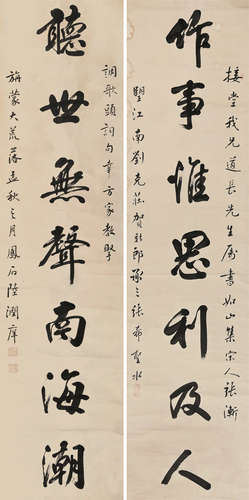 接堂我兄道長先生屬書如山集宋人張
作事惟思利及人
望江南劉克莊賀新郎張希聖水
調歌頭詞句幸方家教
聽世無聲南海潮
旃蒙大荒落孟秋之月鳳石陸潤庠